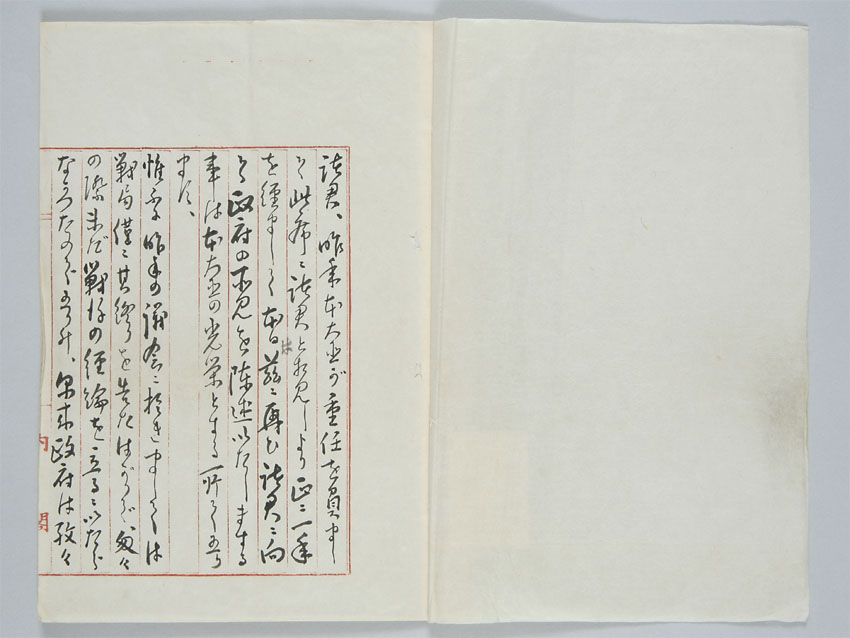 諸君、昨年本大臣ガ重任を負まし
て此席ニ諸君と相見しより正ニ一年
を経まして本日茲ニ再ひ諸君ニ向
て政府の所見を陳述いたしまする
事は本大臣の光栄とする所であり
ます、
惟ふに昨年の議会ニ於きましては
戦局僅ニ其終りを告たばかりで、匆々
の際未だ戦後の経綸を立るニいたら
なかつたのであります、爾来政府は孜々
内閣